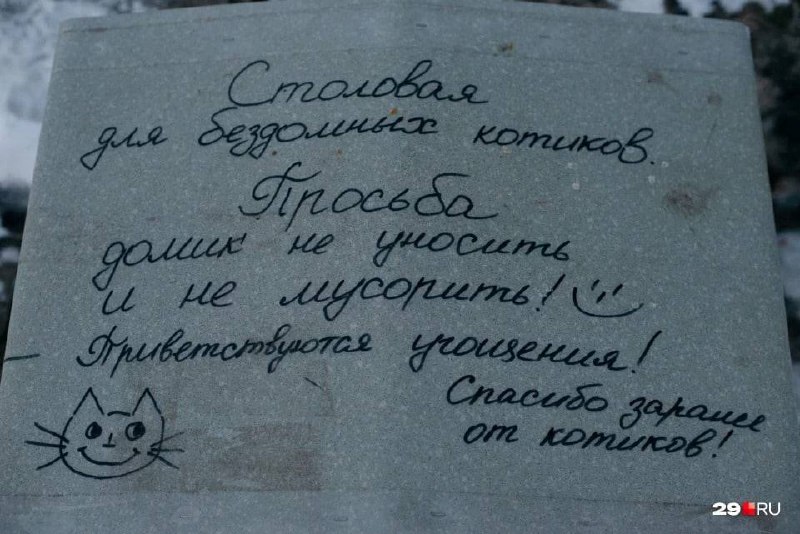 Столовая
для бездомных котиков.
Просьба
домик не уносить
и не мусорить!
Приветствуются угощения!
Спасибо заранее
от котиков!
29.RU